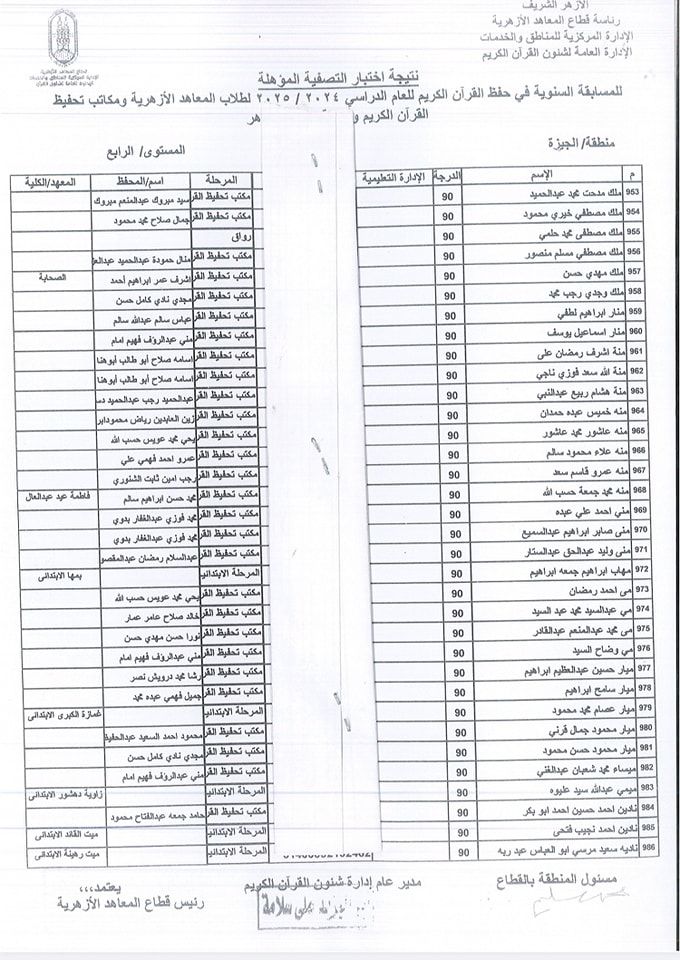 الأزهر الشريف
رئاسة قطاع المعاهد الأزهرية
الإدارة المركزية للمناطق والخدمات
الإدارة العامة لشئون القرآن الكريم
نتيجة اختبار التصفية المؤهلة
للمسابقة السنوية في حفظ القرآن الكريم للعام الدراسي ٢٠٢٤ / ٢٠٢٥ لطلاب المعاهد الأزهرية ومكاتب تحفيظ
القرآن الكريم و هر
منطقة/ الجيزة المستوى/ الرابع
م الإسم الدرجة الإدارة التعليمية المرحلة اسم/المحفظ المعهد/الكلية
953 ملك مدحت محمد عبدالحميد 90 مكتب تحفيظ القر سيد مبروك عبدالمنعم مبروك
954 ملك مصطفي خيري محمود 90 مكتب تحفيظ القر جمال صلاح محمد محمود
955 ملك مصطفى محمد حلمي 90 رواق
956 ملك مصطفي مسلم منصور 90 مكتب تحفيظ القر منال حمودة عبدالحميد عبدالعز
957 ملك مهدي حسن 90 مكتب تحفيظ القر اشرف عمر ابراهيم أحمد الصحابة
958 ملك وجدي رجب محمد 90 مكتب تحفيظ القر مجدي نادي كامل حسن
959 منار ابراهيم لطفي 90 مكتب تحفيظ القر عباس سالم عبدالله سالم
960 منار اسماعيل يوسف 90 مكتب تحفيظ القر مني عبدالرؤف فهيم امام
961 منة اشرف رمضان على 90 مكتب تحفيظ القر اسامه صلاح أبو طالب أبوهنا
962 منة الله سعد فوزي ناجي 90 مكتب تحفيظ القر اسامه صلاح أبو طالب أبوهنا
963 منة هشام ربيع عبدالنبي 90 مكتب تحفيظ القر عبدالحميد رجب عبدالحميد دس
964 منه خميس عبده حمدان 90 مكتب تحفيظ القر زين العابدين رياض محمودابر
965 منه عاشور محمد عاشور 90 مكتب تحفيظ القر يحي محمد عويس حسب الله
966 منه علاء محمود سالم 90 مكتب تحفيظ القر عمرو احمد فهمي علي
967 منه عمرو قاسم سعد 90 مكتب تحفيظ القر رجب امين ثابت الشنوري
968 منه محمد جمعة حسب الله 90 مكتب تحفيظ القر محمد حسن ابراهيم سالم فاطمة عيد عبدالعال
969 مني احمد علي عبده 90 مكتب تحفيظ القر محمد فوزي عبدالغفار بدوي
970 منى صابر ابراهيم عبدالسميع 90 مكتب تحفيظ القر محمد فوزي عبدالغفار بدوي
971 منى وليد عبدالحق عبدالستار 90 مكتب تحفيظ القر عبدالسلام رمضان عبدالمقصو
972 مهاب ابراهيم جمعه ابراهيم 90 المرحلة الابتدائي بمها الابتدائى
973 مى احمد رمضان 90 مكتب تحفيظ القر يحي محمد عويس حسب الله
974 مي عبدالسيد محمد عبد السيد 90 مكتب تحفيظ القر خالد صلاح عامر عمار
975 مى محمد عبدالمنعم عبدالقادر 90 مكتب تحفيظ القر نورا حسن مهدي حسن
976 مي وضاح السيد 90 مكتب تحفيظ القر مني عبدالرؤف فهيم امام
977 ميار حسين عبدالعظيم ابراهيم 90 مكتب تحفيظ القر رشا محمد درويش نصر
978 ميار سامح ابراهيم 90 مكتب تحفيظ القر جميل فهمي عبده محمد
979 ميار عصام محمد محمود 90 المرحلة الابتدائي غمازة الكبرى الابتدائى
980 ميار محمود جمال قرني 90 مكتب تحفيظ القر محمود احمد السعيد عبدالحفيظ
981 ميار محمود حسن محمود 90 مكتب تحفيظ القر مجدي نادي كامل حسن
982 ميساء محمد شعبان عبدالغني 90 مكتب تحفيظ القر مني عبدالرؤف فهيم امام
983 ميمي عبدالله سيد عليوه 90 المرحلة الابتدائي زاوية دهشور الابتدائى
984 نادين احمد حسين احمد ابو بكر 90 مكتب تحفيظ القر حامد جمعه عبدالفتاح محمود
985 نادين احمد نجيب فتحى 90 المرحلة الابتدائي ميت القائد الابتدائى
986 ناديه سعيد مرسي ابو العباس عبد ربه 90 المرحلة الابتدائي ميت رهينة الابتدائى
مسئول المنطقة بالقطاع مدير عام إدارة شئون القرآن الكريم يعتمد،،،
رئيس قطاع المعاهد الأزهرية
على سلامة